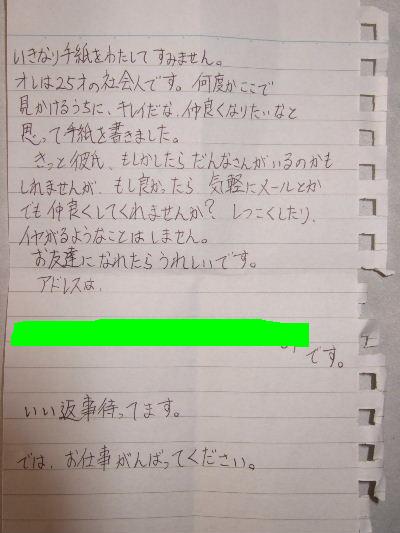 いきなり手紙をわたしてすみません。
オレは25才の社会人です。何度かここで
見かけるうちに、キレイだな、仲良くなりたいなと
思って手紙を書きました。
きっと彼氏、もしかしたらだんなさんがいるのかも
しれませんが、もし良かったら、気軽にメールとか
でも仲良くしてくれませんか?しつこくしたり、
イヤがるようなことはしません。
お友達になれたらうれしいです。
アドレスは、
です。
いい返事待ってます。
では、お仕事がんばってください。